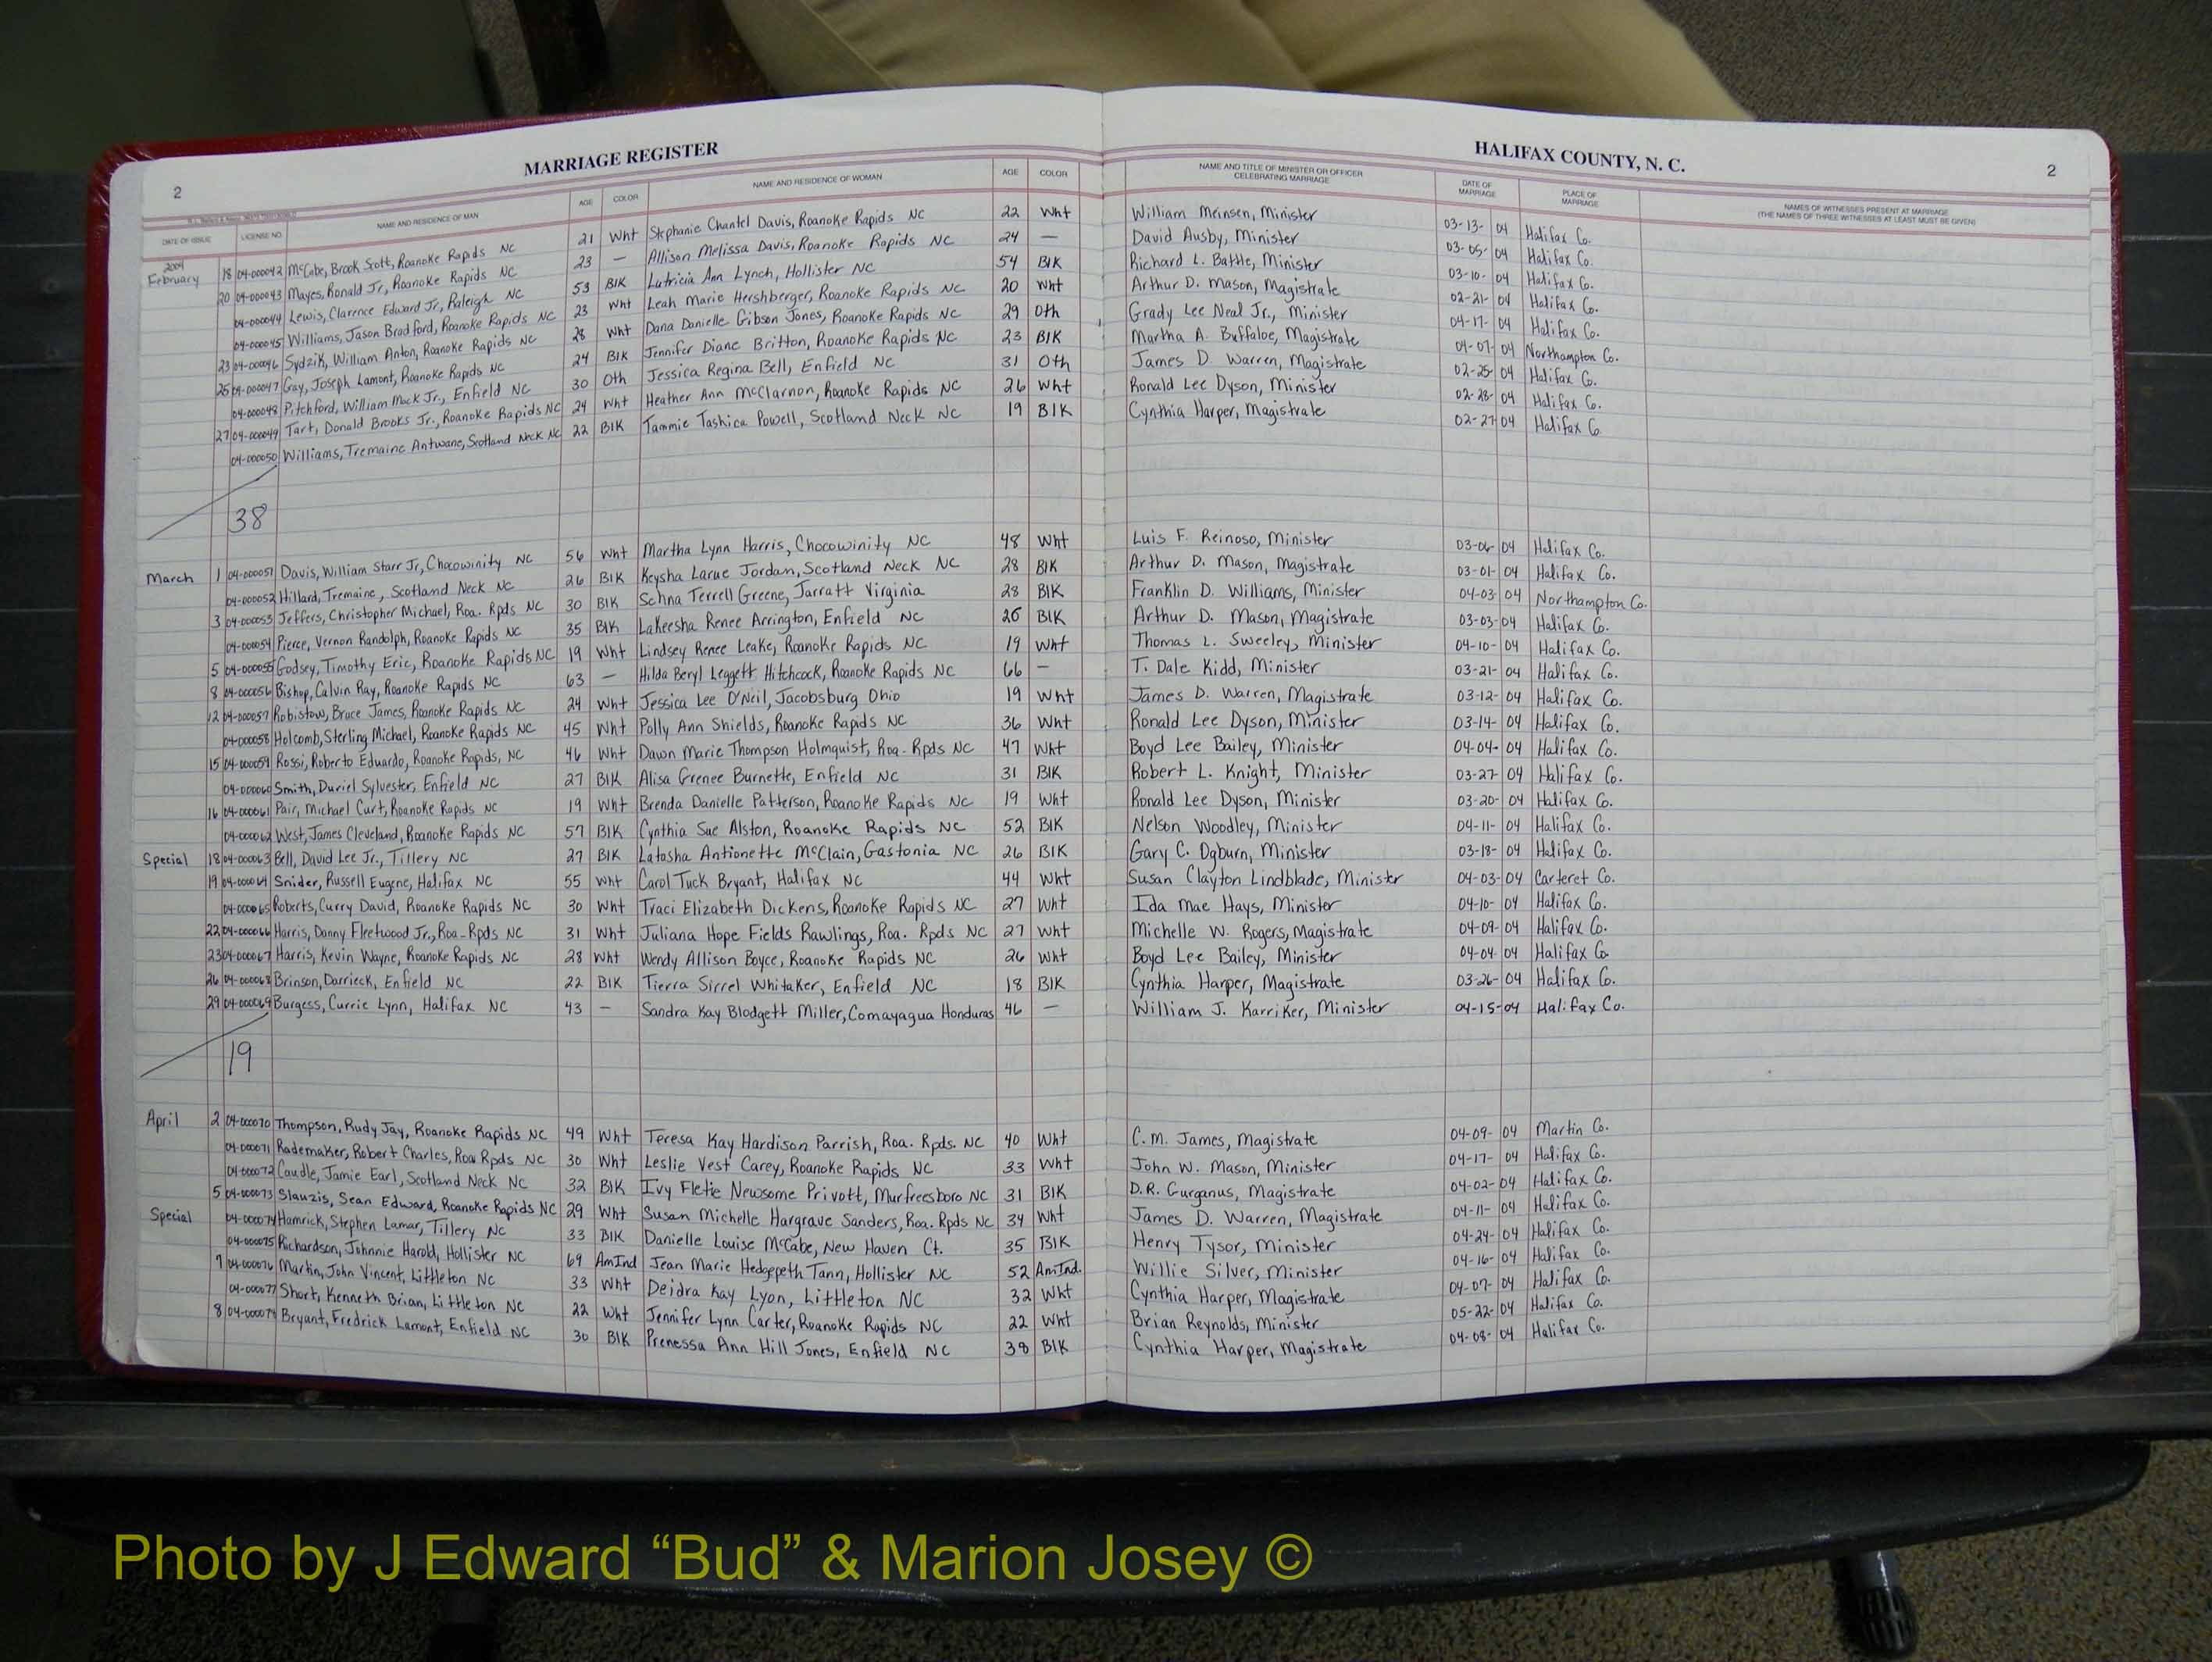 MARRIAGE REGISTER
HALIFAX COUNTY, N. C.
2
2
DATE OF ISSUE LICENSE NO. NAME AND RESIDENCE OF MAN AGE COLOR NAME AND RESIDENCE OF WOMAN AGE COLOR NAME AND TITLE OF MINISTER OR OFFICER CELEBRATING MARRIAGE DATE OF MARRIAGE PLACE OF MARRIAGE NAMES OF WITNESSES PRESENT AT MARRIAGE (THE NAMES OF THREE WITNESSES AT LEAST MUST BE GIVEN)
2004
February 18 04-000042 McCabe, Brook Scott, Roanoke Rapids NC 21 Wht Stephanie Chantel Davis, Roanoke Rapids NC 22 Wht William Meinsen, Minister 03-13-04 Halifax Co.
20 04-000043 Mayes, Ronald Jr, Roanoke Rapids NC 23 — Allison Melissa Davis, Roanoke Rapids NC 24 — David Ausby, Minister 03-05-04 Halifax Co.
04-000044 Lewis, Clarence Edward Jr, Raleigh NC 53 Blk Lutricia Ann Lynch, Hollister NC 54 Blk Richard L. Battle, Minister 03-10-04 Halifax Co.
04-000045 Williams, Jason Bradford, Roanoke Rapids NC 23 Wht Leah Marie Hershberger, Roanoke Rapids NC 20 Wht Arthur D. Mason, Magistrate 02-21-04 Halifax Co.
23 04-000046 Sydzik, William Anton, Roanoke Rapids NC 28 Wht Dana Danielle Gibson Jones, Roanoke Rapids NC 29 Oth Grady Lee Neal Jr., Minister 04-17-04 Halifax Co.
25 04-000047 Gay, Joseph Lamont, Roanoke Rapids NC 24 Blk Jennifer Diane Britton, Roanoke Rapids NC 23 BlK Martha A. Buffaloe, Magistrate 04-07-04 Northampton Co.
04-000048 Pitchford, William Mack Jr., Enfield NC 30 Oth Jessica Regina Bell, Enfield NC 31 Oth James D. Warren, Magistrate 02-25-04 Halifax Co.
27 04-000049 Tart, Donald Brooks Jr., Roanoke Rapids NC 24 Wht Heather Ann McClarnon, Roanoke Rapids NC 26 Wht Ronald Lee Dyson, Minister 02-28-04 Halifax Co.
04-000050 Williams, Tremaine Antwane, Scotland Neck NC 22 BlK Tammie Tashica Powell, Scotland Neck NC 19 BlK Cynthia Harper, Magistrate 02-27-04 Halifax Co
38
March 1 04-000051 Davis, William Starr Jr, Chocowinity NC 56 Wht Martha Lynn Harris, Chocowinity NC 48 Wht Luis F. Reinoso, Minister 03-06-04 Halifax Co.
04-000052 Hillard, Tremaine, Scotland Neck NC 26 BlK Keysha Larue Jordan, Scotland Neck NC 28 BlK Arthur D. Mason, Magistrate 03-01-04 Halifax Co.
3 04-000053 Jeffers, Christopher Michael, Roa. Rpds NC 30 BlK Schna Terrell Greene, Jarratt Virginia 28 BlK Franklin D. Williams, Minister 04-03-04 Northampton Co.
04-000054 Pierce, Vernon Randolph, Roanoke Rapids NC 35 BlK Lakeesha Renee Arrington, Enfield NC 26 BlK Arthur D. Mason, Magistrate 03-03-04 Halifax Co.
5 04-000055 Godsey, Timothy Eric, Roanoke Rapids NC 19 Wht Lindsey Renee Leake, Roanoke Rapids NC 19 Wht Thomas L. Sweeley, Minister 04-10-04 Halifax Co.
8 04-000056 Bishop, Calvin Ray, Roanoke Rapids NC 63 — Hilda Beryl Leggett Hitchcock, Roanoke Rapids NC 66 — T. Dale Kidd, Minister 03-21-04 Halifax Co.
12 04-000057 Robistow, Bruce James, Roanoke Rapids NC 24 Wht Jessica Lee O'Neil, Jacobsburg Ohio 19 Wht James D. Warren, Magistrate 03-12-04 Halifax Co.
04-000058 Holcomb, Sterling Michael, Roanoke Rapids NC 45 Wht Polly Ann Shields, Roanoke Rapids NC 36 Wht Ronald Lee Dyson, Minister 03-14-04 Halifax Co.
15 04-000059 Rossi, Roberto Eduardo, Roanoke Rapids, NC 46 Wht Dawn Marie Thompson Holmquist, Roa. Rpds NC 47 Wht Boyd Lee Bailey, Minister 04-04-04 Halifax Co.
04-000060 Smith, Duriel Sylvester, Enfield NC 27 BlK Alisa Grenee Burnette, Enfield NC 31 BlK Robert L. Knight, Minister 03-27-04 Halifax Co.
16 04-000061 Pair, Michael Curt, Roanoke Rapids NC 19 Wht Brenda Danielle Patterson, Roanoke Rapids NC 19 Wht Ronald Lee Dyson, Minister 03-20-04 Halifax Co.
04-000062 West, James Cleveland, Roanoke Rapids NC 57 BlK Cynthia Sue Alston, Roanoke Rapids NC 52 BlK Nelson Woodley, Minister 04-11-04 Halifax Co.
Special 18 04-000063 Bell, David Lee Jr., Tillery NC 27 BlK Latasha Antionette McClain, Gastonia NC 26 BlK Gary C. Ogburn, Minister 03-18-04 Halifax Co.
19 04-000064 Snider, Russell Eugene, Halifax NC 55 Wht Carol Tuck Bryant, Halifax NC 44 Wht Susan Clayton Lindblade, Minister 04-03-04 Carteret Co.
04-000065 Roberts, Curry David, Roanoke Rapids NC 30 Wht Traci Elizabeth Dickens, Roanoke Rapids NC 27 Wht Ida Mae Hays, Minister 04-10-04 Halifax Co.
22 04-000066 Harris, Danny Fleetwood Jr., Roa-Rpds NC 31 Wht Juliana Hope Fields Rawlings, Roa. Rpds NC 27 Wht Michelle W. Rogers, Magistrate 04-09-04 Halifax Co.
23 04-000067 Harris, Kevin Wayne, Roanoke Rapids NC 28 Wht Wendy Allison Boyce, Roanoke Rapids NC 26 Wht Boyd Lee Bailey, Minister 04-04-04 Halifax Co
26 04-000068 Brinson, Darrieck, Enfield NC 22 BlK Tierra Sirrel Whitaker, Enfield NC 18 BlK Cynthia Harper, Magistrate 03-26-04 Halifax Co.
29 04-000069 Burgess, Currie Lynn, Halifax NC 43 — Sandra Kay Blodgett Miller, Comayagua Honduras 46 — William J. Karriker, Minister 04-15-04 Halifax Co.
19
April 2 04-000070 Thompson, Rudy Jay, Roanoke Rapids NC 49 Wht Teresa Kay Hardison Parrish, Roa. Rpds. NC 40 Wht C.M. James, Magistrate 04-09-04 Martin Co.
04-000071 Rademaker, Robert Charles, Roa Rpds NC 30 Wht Leslie Vest Carey, Roanoke Rapids NC 33 Wht John W. Mason, Minister 04-17-04 Halifax Co.
04-000072 Caudle, Jamie Earl, Scotland Neck NC 32 BlK Ivy Fletie Newsome Privott, Murfreesboro NC 31 BlK D.R. Gurganus, Magistrate 04-02-04 Halifax Co.
5 04-000073 Slauzis, Sean Edward, Roanoke Rapids NC 29 Wht Susan Michelle Hargrave Sanders, Roa. Rpds NC 34 Wht James D. Warren, Magistrate 04-11-04 Halifax Co.
Special 04-000074 Hamrick, Stephen Lamar, Tillery NC 33 BlK Danielle Louise McCabe, New Haven Ct. 35 BlK Henry Tysor, Minister 04-24-04 Halifax Co.
04-000075 Richardson, Johnnie Harold, Hollister NC 69 AmInd Jean Marie Hedgepeth Tann, Hollister NC 52 AmInd. Willie Silver, Minister 04-16-04 Halifax Co.
7 04-000076 Martin, John Vincent, Littleton NC 33 Wht Deidra Kay Lyon, Littleton NC 32 Wht Cynthia Harper, Magistrate 04-07-04 Halifax Co.
04-000077 Short, Kenneth Brian, Littleton NC 22 Wht Jennifer Lynn Carter, Roanoke Rapids NC 22 Wht Brian Reynolds, Minister 05-22-04 Halifax Co.
8 Bryant, Fredrick Lamont, Enfield NC 30 BlK Prenessa Ann Hill Jones, Enfield NC 38 BlK Cynthia Harper, Magistrate 04-08-04 Halifax Co.
Photo by J Edward “Bud” & Marion Josey ©